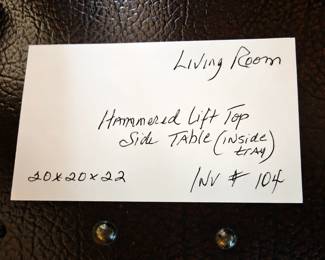 Living Room
Hammered Lift Top
Side Table (inside
tray)
20x20x22
Inv # 104